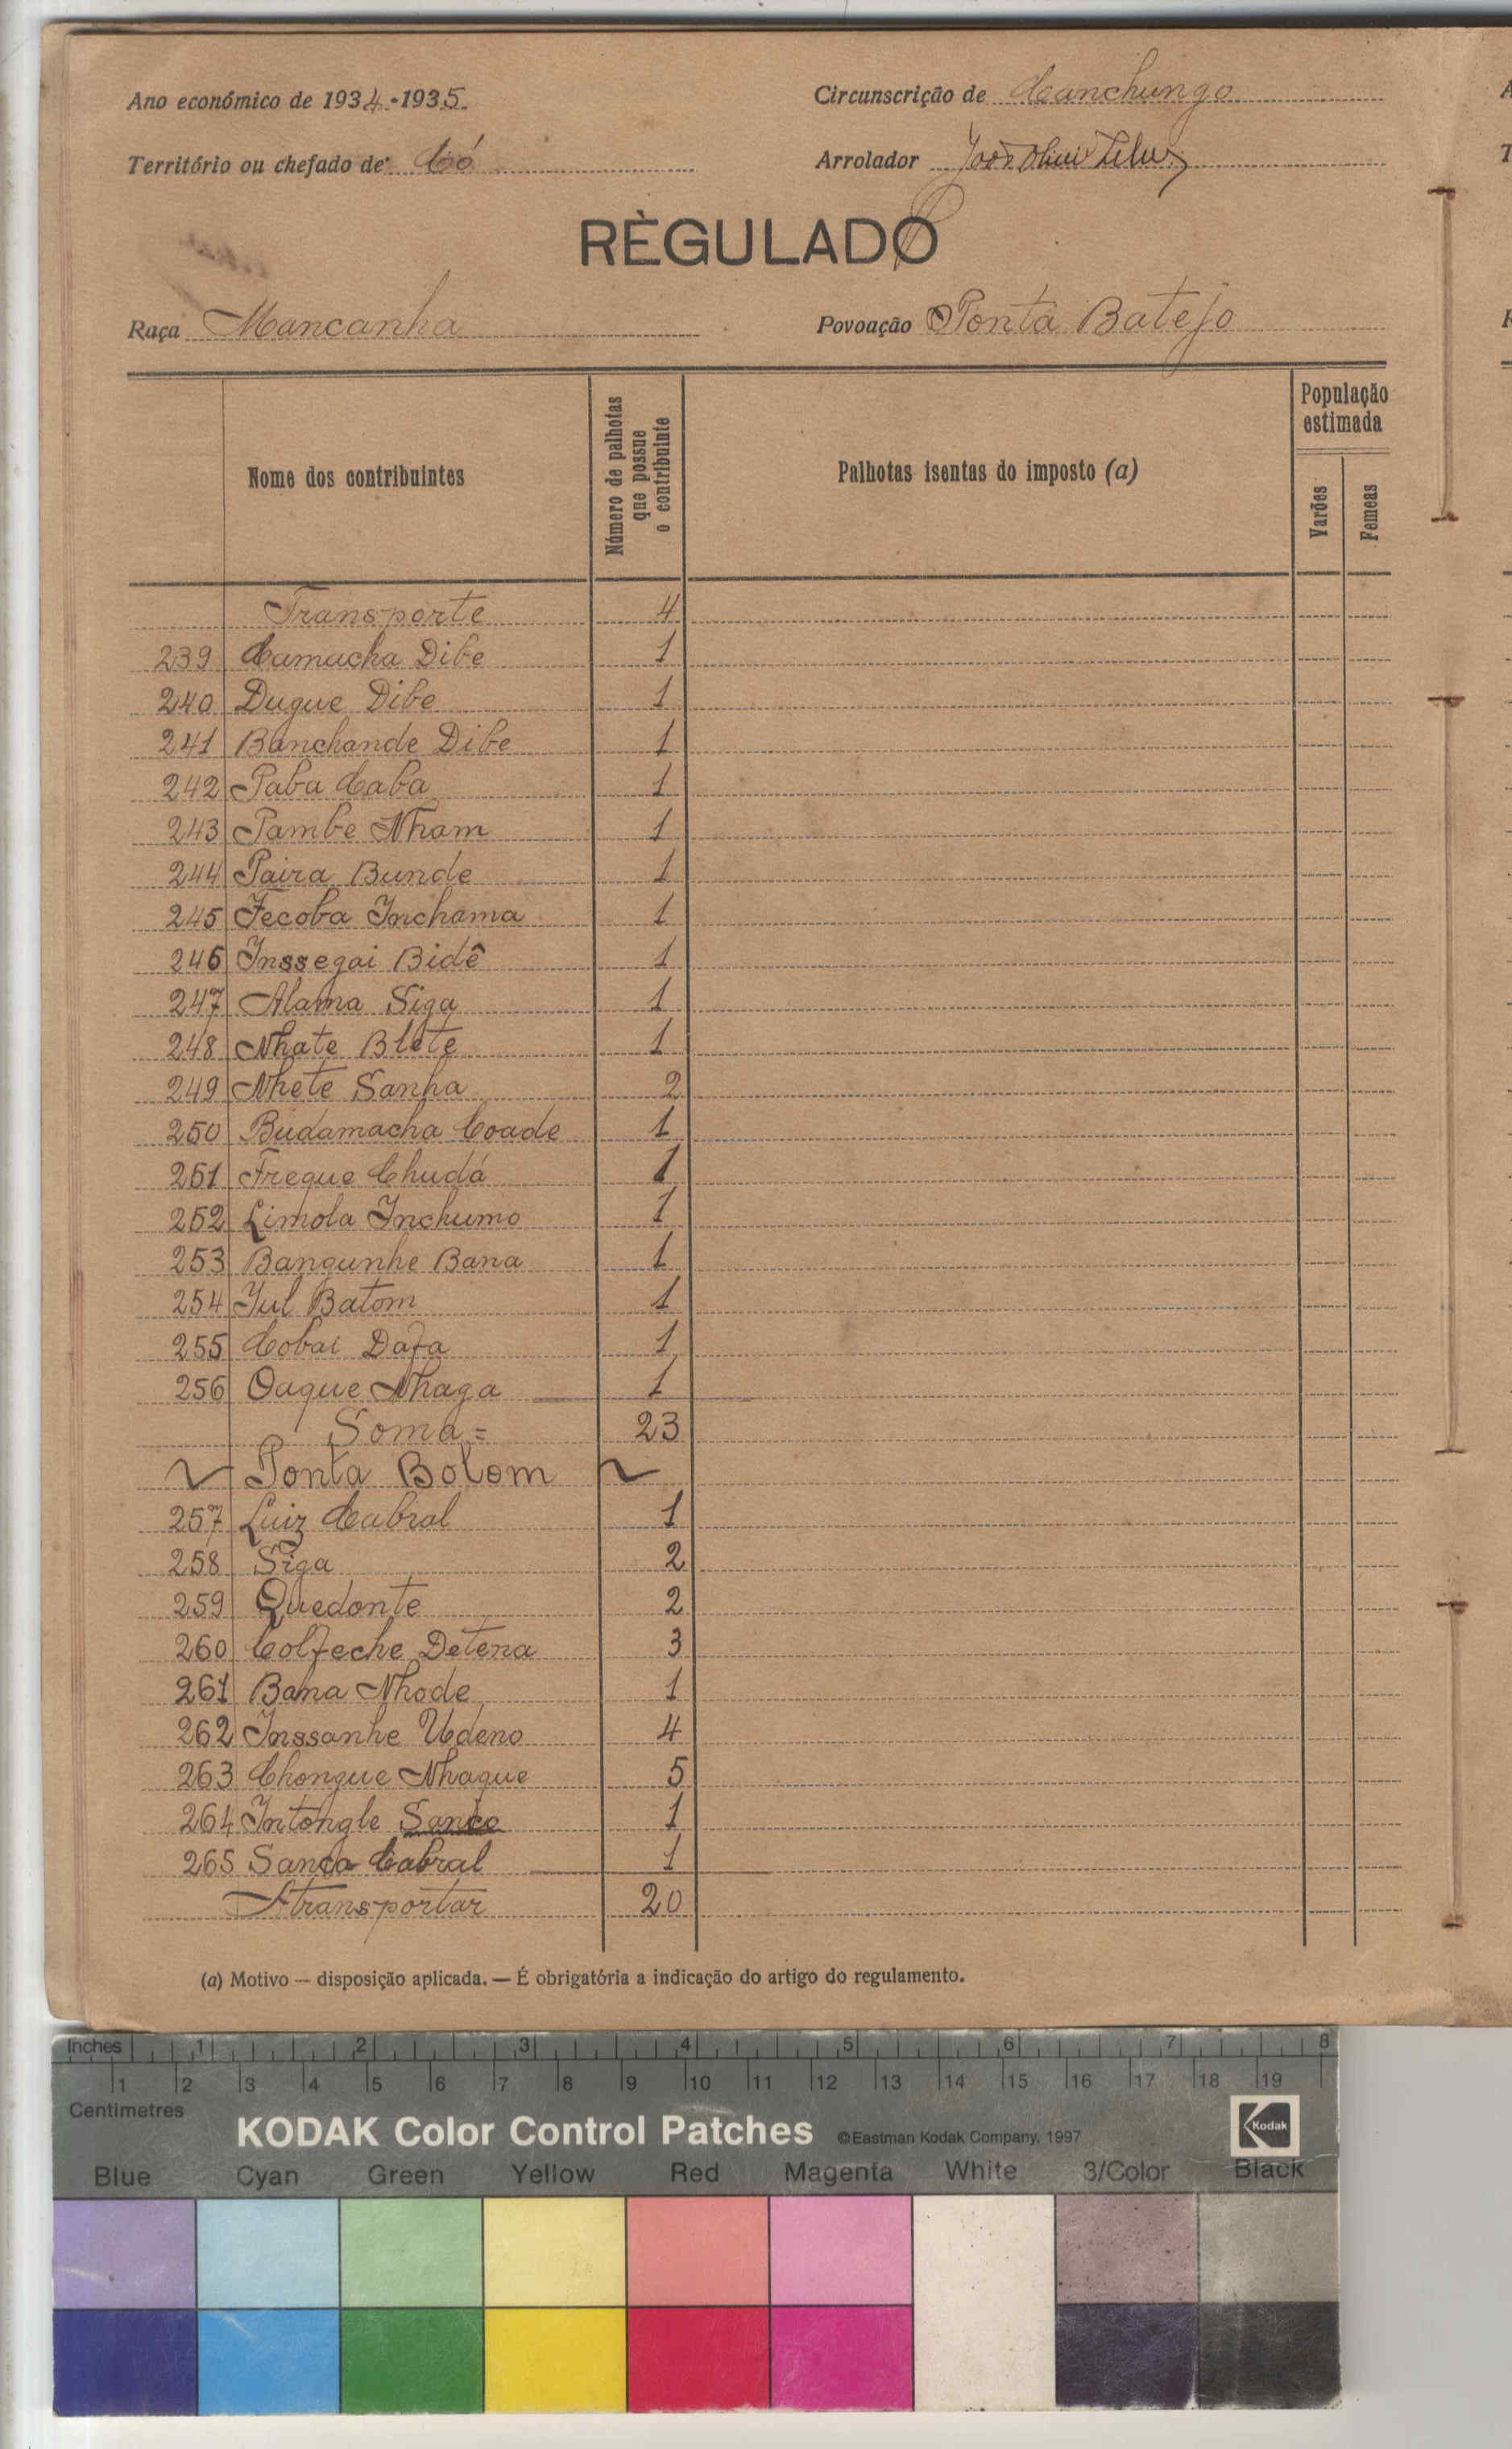 Ano económico de 1934-1935
Circunscrição de Canchungo
Território ou chefado de Có
Arrolador João
RÈGULADO
Raça Mancanha
Povoação Ponta Batejo
Nome dos contribuintes
Número de palhotas que possue o contribuinte
Palhotas isentas do imposto (a)
População estimada
Varões
Femeas
Transporte 4
239 Camacha Dibe 1
240 Dugue Dibe 1
241 Banchande Dibe 1
242 Paba Caba 1
243 Pambe Nham 1
244 Paira Bunde 1
245 Fecoba Inchama 1
246 Inssegai Bidê 1
247 Alama Siga 1
248 Nhate Blete 1
249 Nhete Sanha 2
250 Budamacha Coade 1
251 Freque Chudá 1
252 Limola Inchumo 1
253 Bangunhe Bana 1
254 Jul Batom 1
255 Cobai Dafa 1
256 Oaque Nhaga 1
Soma = 23
Ponta Bolom
257 Luiz Cabral 1
258 Siga 2
259 Quedonte 2
260 Colfeche Detena 3
261 Bana Nhode 1
262 Inssanhe Udeno 4
263 Chongue Nhaque 5
264 Intongle Sanca 1
265 Sanca Cabral 1
Atransportar 20
(a) Motivo — disposição aplicada. — É obrigatória a indicação do artigo do regulamento.
Inches 1 2 3 4 5 6 7 8
1 2 3 4 5 6 7 8 9 10 11 12 13 14 15 16 17 18 19
Centimetres
KODAK Color Control Patches ©Eastman Kodak Company, 1997 Kodak
Blue Cyan Green Yellow Red Magenta White 3/Color Black